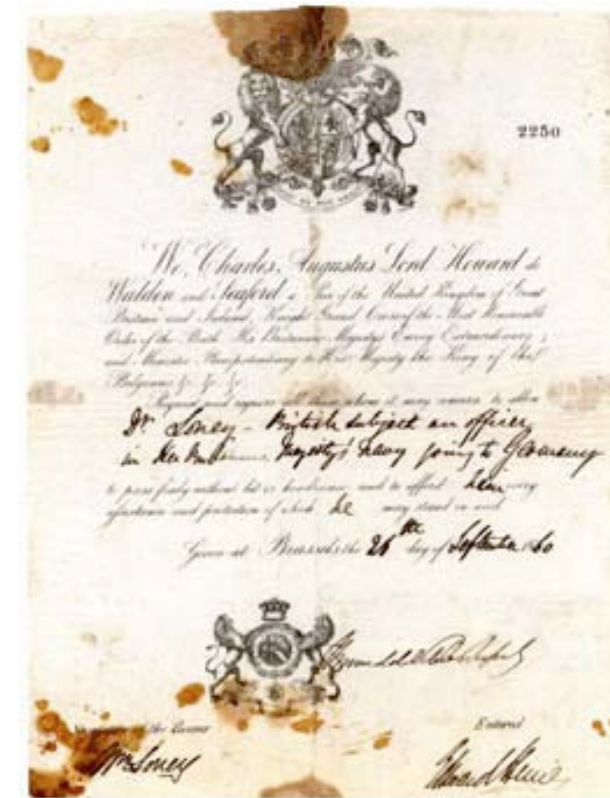 2250
We, Charles, Augustus Lord Howard de
Walden and Seaford a Peer of the United Kingdom of Great
Britain and Ireland, Knight Grand Cross of the Most Honorable
Order of the Bath Her Britannic Majesty's Envoy Extraordinary
and Minister Plenipotentiary to His Majesty the King of the
Belgians &. &. &.
Request and require all those whom it may concern to allow
Dr Loney - British subject an officer
in Her Majesty's navy going to Germany
to pass freely without let or hindrance and to afford him every
assistance and protection of which he may stand in need
Given at Brussels the 26th day of September 1860
of the Bearer
Entered
Wm Loney